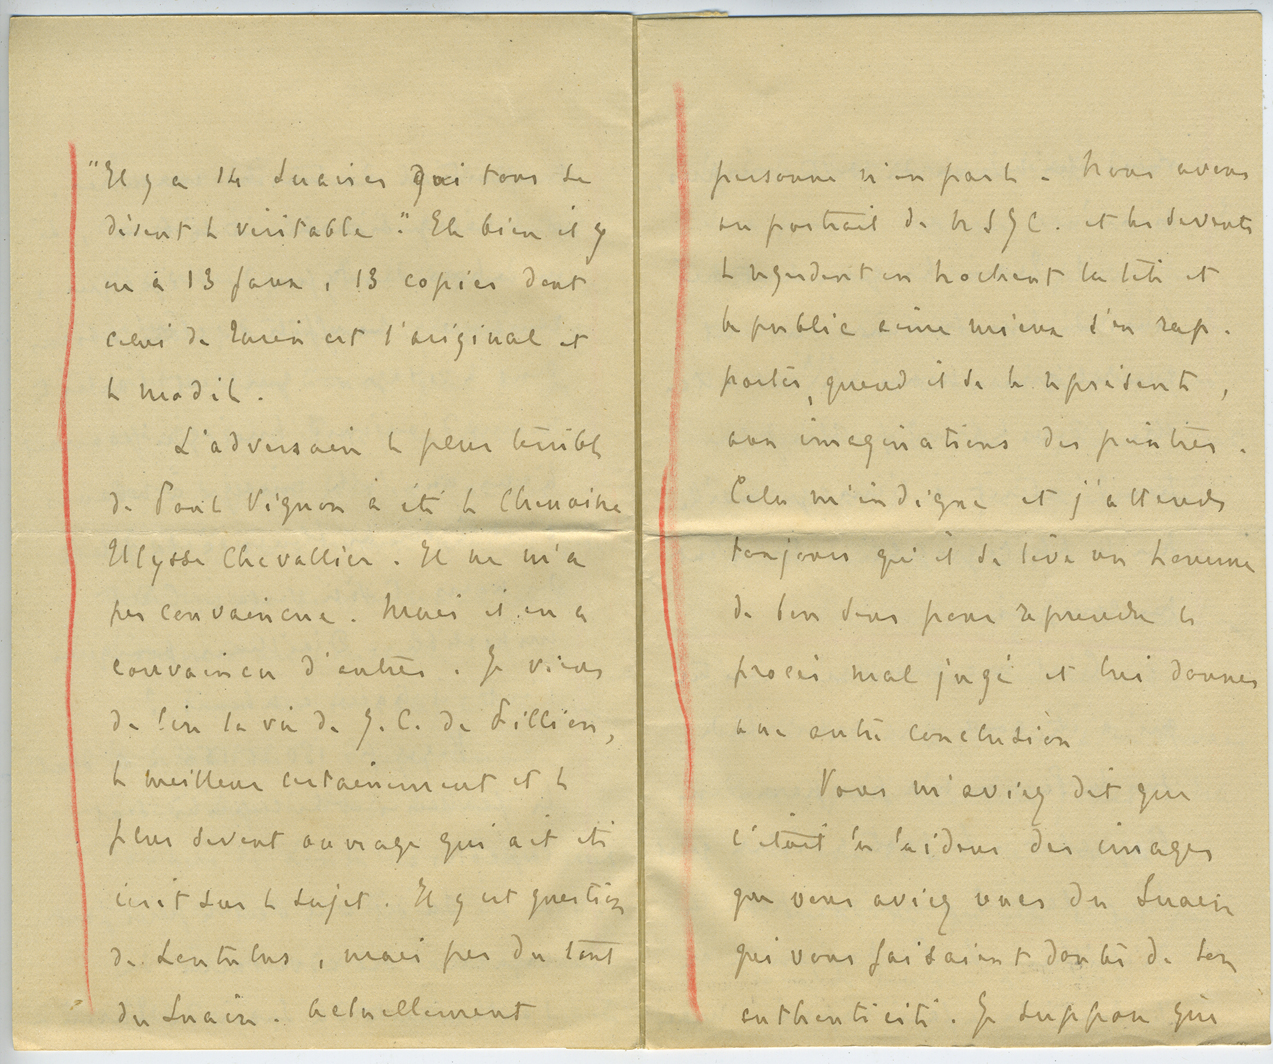 "Il y a 14 Suaires qui tous se
disent le véritable." Eh bien il y
en a 13 faux, 13 copies dont
celui de Turin est l'original et
le modèle.
L'adversaire le plus terrible
de Paul Vignon a été le Chanoine
Ulysse Chevallier. Il ne m'a
pas convaincu. Mais il en a
convaincu d'autres. Je viens
de lire la vie de J. C. de Fillion,
le meilleur certainement et le
plus savant ouvrage qui ait été
écrit sur le sujet. Il y est question
de Lentulus, mais pas du tout
du Suaire. Actuellement
personne n'en parle. Nous avons
un portrait de N S J C. et les savants
le regardent en hochant la tête et
le public aime mieux s'en rap-
porter, quand il se le représente,
aux imaginations des peintres.
Cela m'indigne et j'attends
toujours qu'il se lève un homme
de bon sens pour reprendre le
procès mal jugé et lui donner
une autre conclusion
Vous m'aviez dit que
c'était la laideur des images
que vous aviez vues du Suaire
qui vous faisaient douter de son
authenticité. Je suppose que